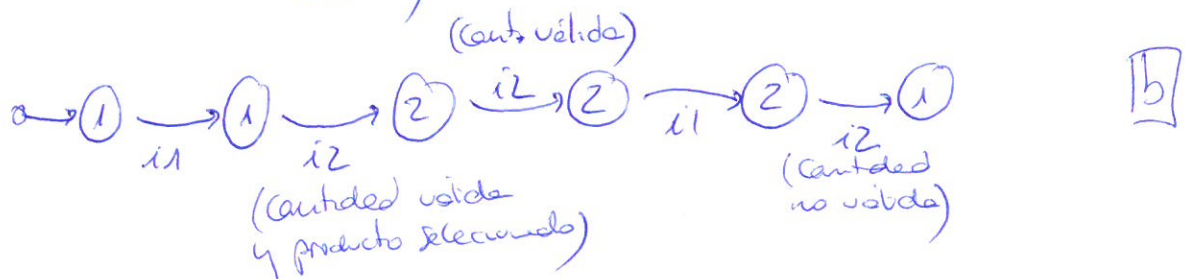 (Cant. válida)
1 i1 1 i2 2 i2 2 i1 2 i2 1
b
(cantidad válida
y producto seleccionado)
(cantidad
no válida)